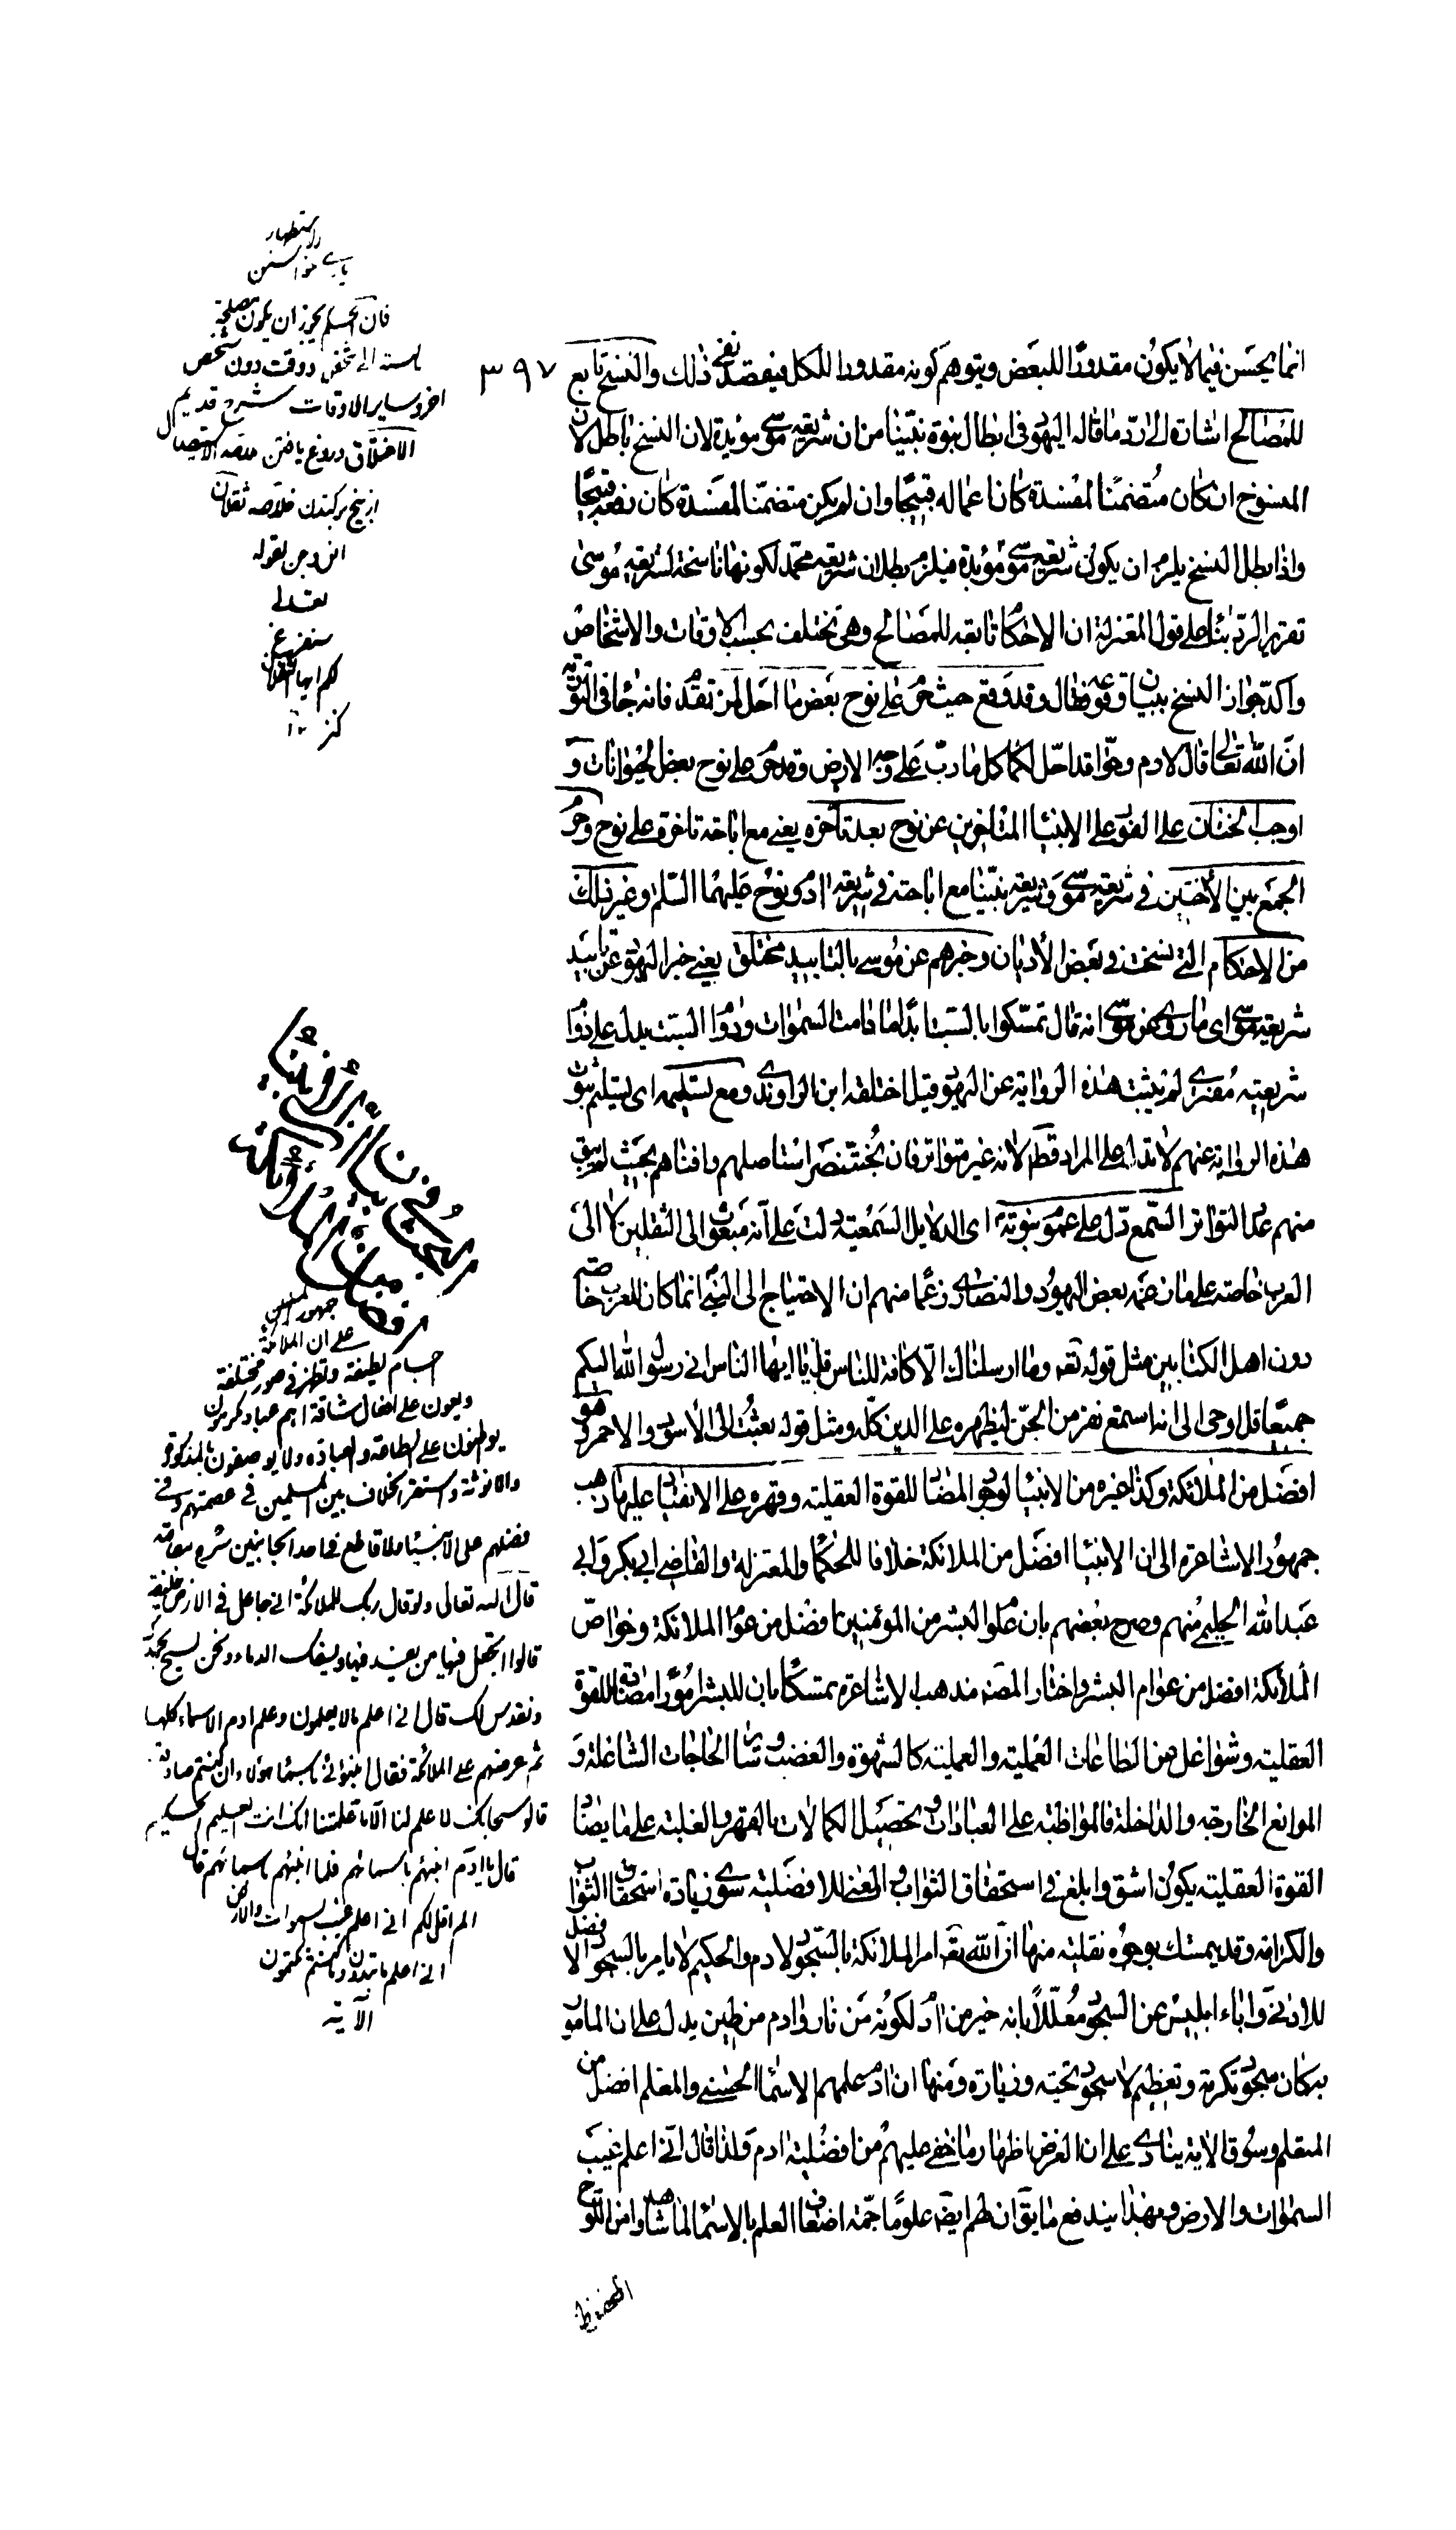 انما يحسن فيما لا يكون مقدورا للبعض ويتوهم كونه مقدورا للكل فيقصد نفى ذلك والنسخ تابع
٣٩٧
للمصالح اشارة الى رد ما قاله اليهود فى ابطال نبوة نبينا من ان شريعة موسى مؤبدة لان النسخ باطل لان
المنسوخ ان كان متضمنا لمفسدة كان اعماله قبيحا وان لم يكن متضمنا لمفسدة كان رفعه قبيحا
واذا بطل النسخ يلزم ان يكون شريعة موسى مؤبدة فيلزم بطلان شريعة محمد لكونها ناسخة لشريعة موسى
تقرير الرد بناء على قول المعتزلة ان الاحكام تابعة للمصالح وهى تختلف بحسب الاوقات والاشخاص
واكد جواز النسخ ببيان وقوعه فقال وقد وقع حيث حرم على نوح بعض ما احل لمن تقدم فانه جاء فى التورية
ان الله تعالى قال لادم وحوا قد احل لكما كل ما دب على وجه الارض وقد حرم على نوح بعض الحيوانات و
اوجب الختان على الفور على الانبياء المتاخرين عن نوح بعد تاخره يعنى مع اباحة تاخره على نوح وحرم
الجمع بين الاختين فى شريعة موسى وشريعة نبينا مع اباحته فى شريعة ادم ونوح عليهما السلم وغير ذلك
من الاحكام التى نسخت فى بعض الاديان وخبرهم عن موسى بالتابيد مختلق يعنى خبر اليهود عن تابيد
شريعة موسى اى ما روى عن موسى انه قال تمسكوا بالسبت ابدا ما دامت السموات ودوام السبت يدل على دوام
شريعته مفترى لم يثبت هذه الرواية عن اليهود قيل اختلقه ابن الراوندى ومع تسليمه اى تسليم ثبوت
هذه الرواية عنهم لا تدل على المراد قطعا لانه غير متواتر فان بختنصر استاصلهم وافناهم بحيث لم يبق
منهم عدد التواتر والسمع دل على عموم نبوته اى الدلايل السمعية دلت على انه مبعوث الى الثقلين لا الى
العرب خاصة على ما زعمه بعض اليهود والنصارى زعما منهم ان الاحتياج الى النبى انما كان للعرب خاصة
دون اهل الكتابين مثل قوله تعه وما ارسلناك الا كافة للناس قل يا ايها الناس انى رسول الله اليكم
جميعا قل اوحى الى انه استمع نفر من الجن ليظهره على الدين كله ومثل قوله بعثت الى الاسود والاحمر وهو
افضل من الملائكة وكذا غيره من الانبياء لوجود المضاد للقوة العقلية وقهره على الانقياد عليها ذهب
جمهور الاشاعرة الى ان الانبياء افضل من الملائكة خلافا للحكماء والمعتزلة والقاضى ابى بكر وابى
عبد الله الحليمى منهم وصرح بعضهم بان عوام البشر من المؤمنين افضل من عوام الملائكة وخواص
الملائكة افضل من عوام البشر واختار المصنف مذهب الاشاعرة متمسكا بان للبشر امورا مضادة للقوة
العقلية وشواغل عن الطاعات العلمية والعملية كالشهوة والغضب وساير الحاجات الشاغلة و
الموانع الخارجة والداخلة فالمواظبة على العبادات وتحصيل الكمالات بالقهر والغلبة على ما يضاد
القوة العقلية يكون اشق وابلغ فى استحقاق الثواب ولا معنى للافضلية سوى زيادة استحقاق الثواب
والكرامة وقد يتمسك بوجوه نقلية منها ان الله تعه امر الملائكة بالسجود لادم والحكيم لا يامر بالسجود الافضل
للادنى واباء ابليس عن السجود معللا بانه خير من ادم لكونه من نار وادم من طين يدل على ان المامور
به كان سجود تكرمة وتعظيم لا سجود تحية وزيارة ومنها ان ادم علمهم الاسماء الحسنى والمعلم افضل من
المتعلم وسوق الاية ينادى على ان الغرض اظهار ما خفى عليهم من افضلية ادم ولذا قال انى اعلم غيب
السموات والارض وبهذا يندفع ما يق ان لهم ايضه علوما جمة اضعاف العلم بالاسماء لما شاهدوا من اللوح
المحفوظ
الاستظهار
فان الحكم يجوز ان يكون مصلحة
بالنسبة الى شخص ووقت دون شخص
اخر وساير الاوقات شرح قديم
الاختلاق دروغ بافتن الاستيصال
از بيخ بركندن خلاصه ثقلان
انس وجن لقوله
تعالى
سنفرغ
لكم ايها الثقلان
كنز
جمهور المسلمين
على ان الملائكة
اجسام لطيفة وتظهر فى صور مختلفة
ويقوون على افعال شاقة هم عباد مكرمون
يواظبون على الطاعة والعبادة ولا يوصفون بالذكورة
والانوثة واستقر الخلاف بين المسلمين فى عصمتهم وفى
فضلهم على الانبياء ولا قاطع فى احد الجانبين شرح مقاصد
قال الله تعالى واذ قال ربك للملائكة انى جاعل فى الارض خليفة
قالوا اتجعل فيها من يفسد فيها ويسفك الدماء ونحن نسبح بحمدك
ونقدس لك قال انى اعلم ما لا تعلمون وعلم ادم الاسماء كلها
ثم عرضهم على الملائكة فقال انبئونى باسماء هؤلاء ان كنتم صادقين
قالوا سبحانك لا علم لنا الا ما علمتنا انك انت العليم الحكيم
قال يا ادم انبئهم باسمائهم فلما انبئهم باسمائهم قال
الم اقل لكم انى اعلم غيب السموات والارض
انى اعلم ما تبدون وما كنتم تكتمون
الآية